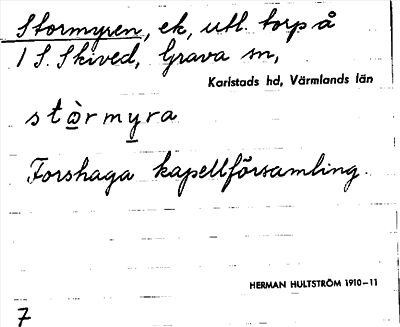 Stormyren, ek, utl. torp å
1 S. Skived, Grava sn,
Karlstads hd, Värmlands län
stòrmyra
Forshaga kapellförsamling.
HERMAN HULTSTRÖM 1910–11
7